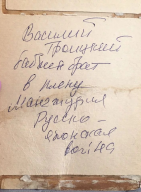 Василий
Троицкий
бабин брат
в плену
Манчжурия
Русско-
японская
война